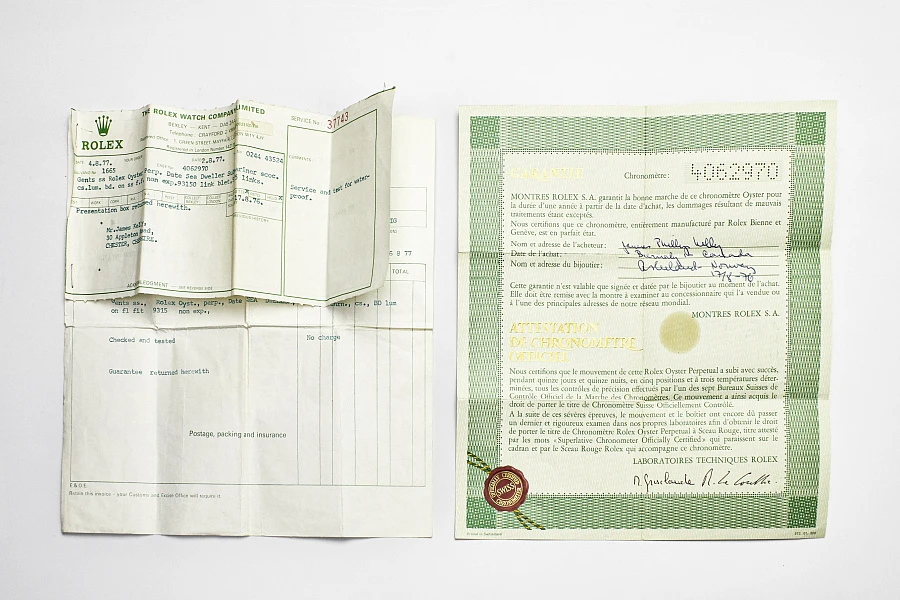 THE ROLEX WATCH COMPANY LIMITED
ROLEX
BEXLEY — KENT
Telephone: CRAYFORD
GREEN STREET MAYFAIR
Registered in London
SERVICE No. 37743
DATE 4.8.77.
DATE 2.8.77.
0244 43524
1665
4062970
Gents ss Rolex Oyster Perp. Date Sea Dweller Submariner scoc.
cs.lum. bd. on ss f. non exp.93150 link blet. links.
17.8.76.
Presentation box returned herewith.
Service and test for water-
proof.
Mr.James Kelly,
30 Appleton
CHESTER, CHESHIRE.
ACKNOWLEDGMENT
8 77
TOTAL
Gents ss., Rolex Oyst., perp., Date SEA cs., BD lum
on fl flt 9315 non exp.,
Checked and tested
No charge
Guarantee returned herewith
Postage, packing and insurance
E & O E
Retain this invoice - your Customs and Excise Office will require it
GARANTIE
Chronomètre: 4062970
MONTRES ROLEX S.A. garantit la bonne marche de ce chronomètre Oyster pour
la durée d'une année à partir de la date d'achat, les dommages résultant de mauvais
traitements étant exceptés.
Nous certifions que ce chronomètre, entièrement manufacturé par Rolex Bienne et
Genève, est en parfait état.
Nom et adresse de l'acheteur: James Phillip Kelly
Date de l'achat: Burnaby Canada
Nom et adresse du bijoutier: Norway
17/8-76
Cette garantie n'est valable que signée et datée par le bijoutier au moment de l'achat.
Elle doit être remise avec la montre à examiner au concessionnaire qui l'a vendue ou
à l'une des principales adresses de notre réseau mondial.
MONTRES ROLEX S.A.
ATTESTATION
DE CHRONOMÈTRE
OFFICIEL
Nous certifions que le mouvement de cette Rolex Oyster Perpetual a subi avec succès,
pendant quinze jours et quinze nuits, en cinq positions et à trois températures déter-
minées, tous les contrôles de précision effectués par l'un des sept Bureaux Suisses de
Contrôle Officiel de la Marche des Chronomètres. Ce mouvement a ainsi acquis le
droit de porter le titre de Chronomètre Suisse Officiellement Contrôlé.
A la suite de ces sévères épreuves, le mouvement et le boîtier ont encore dû passer
un dernier et rigoureux examen dans nos propres laboratoires afin d'obtenir le droit
de porter le titre de Chronomètre Rolex Oyster Perpetual à Sceau Rouge, titre attesté
par les mots «Superlative Chronometer Officially Certified» qui paraissent sur le
cadran et par le Sceau Rouge Rolex qui accompagne ce chronomètre.
LABORATOIRES TECHNIQUES ROLEX
SWISS
Printed in Switzerland